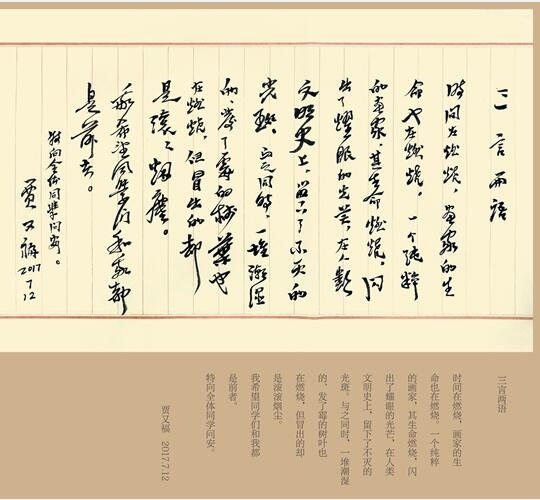 三言两语
时间在燃烧，画家的生
命也在燃烧。一个纯粹
的画家，其生命燃烧，闪
出了耀眼的光芒，在人类
文明史上，留下了不灭的
光斑。与之同时，一堆潮湿
的、发了霉的树叶也
在燃烧，但冒出的却
是滚滚烟尘。
我希望同学们和我都
是前者。
特向全体同学问安。
贾又福
2017
7
12
三言两语
时间在燃烧，画家的生
命也在燃烧。一个纯粹
的画家，其生命燃烧，闪
出了耀眼的光芒，在人类
文明史上，留下了不灭的
光斑。与之同时，一堆潮湿
的、发了霉的树叶也
在燃烧，但冒出的却
是滚滚烟尘。
我希望同学们和我都
是前者。
特向全体同学问安。
贾又福 2017.7.12